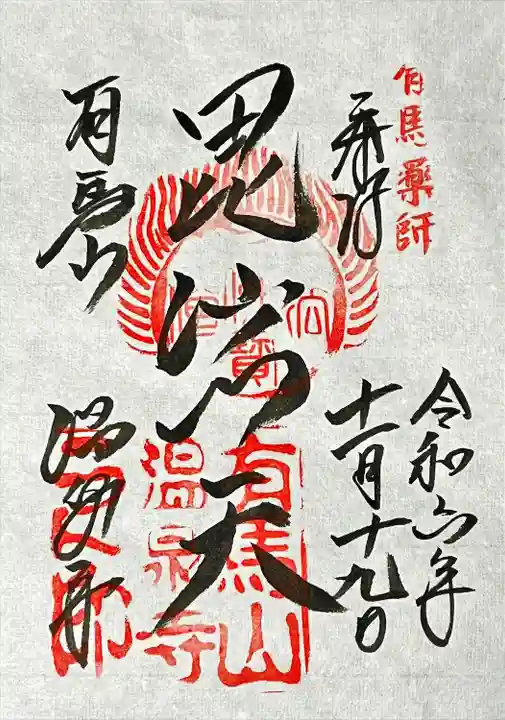 有馬藥師
奉拝
令和六年
十一月十九日
毘沙門天
有馬山
温泉寺
有馬山
温泉寺